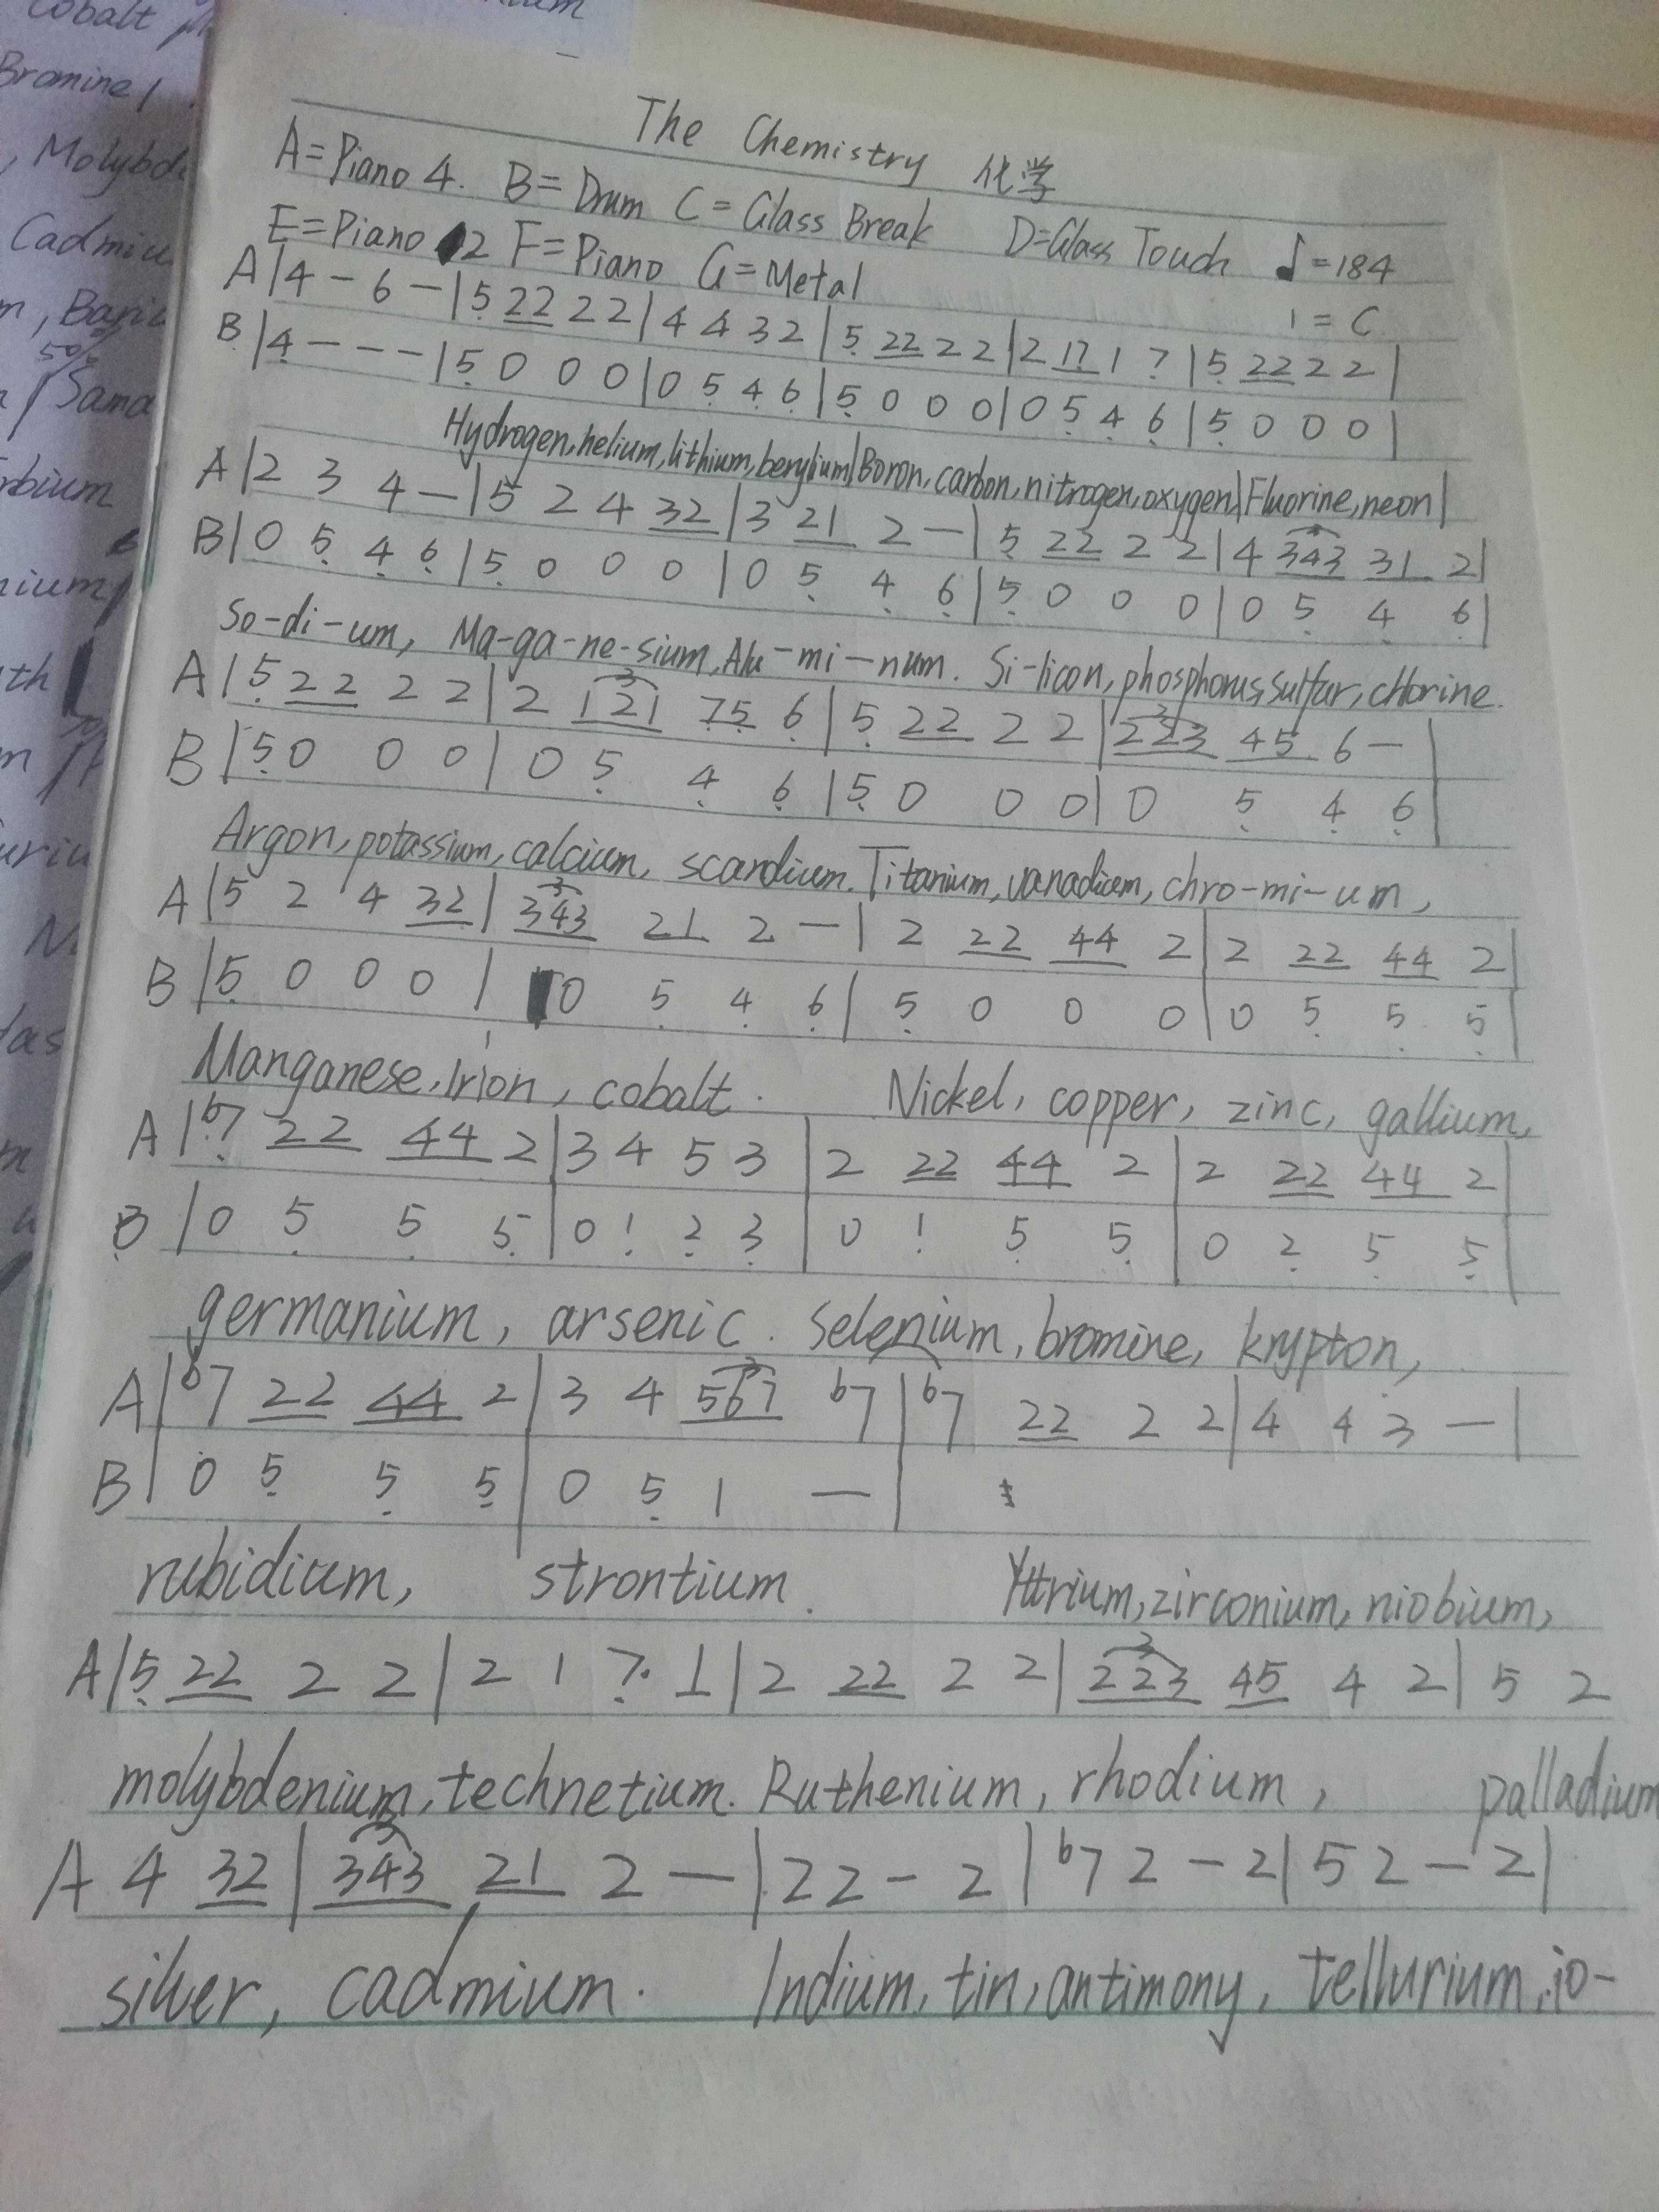 The Chemistry 化学
A=Piano 4. B=Drum C=Glass Break D=Glass Touch ♩=184
E=Piano 2 F=Piano G=Metal 1=C
A|4 - 6 -|5 22 2 2|4 4 3 2|5 22 2 2|2 17 1 7|5 22 2 2|
B|4 - - -|5 0 0 0|0 5 4 6|5 0 0 0|0 5 4 6|5 0 0 0|
Hydrogen, helium, lithium, berylium|Boron, carbon, nitrogen, oxygen|Fluorine, neon|
A|2 3 4 —|5 2 4 32|3 21 2 —|5 22 2 2|4 343 31 2|
B|0 5 4 6|5 0 0 0|0 5 4 6|5 0 0 0|0 5 4 6|
So-di-um, Ma-ga-ne-sium, Alu-mi-num. Si-licon, phosphorus, sulfur, chlorine.
A|5 22 2 2|2 121 75 6|5 22 2 2|223 45 6 —|
B|5 0 0 0|0 5 4 6|5 0 0 0|0 5 4 6|
Argon, potassium, calcium, scandium. Titanium, vanadium, chro-mi-um,
A|5 2 4 32|343 21 2 —|2 22 44 2|2 22 44 2|
B|5 0 0 0|0 5 4 6|5 0 0 0|0 5 5 5|
Manganese, Irion, cobalt. Nickel, copper, zinc, gallium,
A|b7 22 44 2|3 4 5 3|2 22 44 2|2 22 44 2|
B|0 5 5 5|0 1 2 3|0 1 5 5|0 2 5 5|
germanium, arsenic. Selenium, bromine, krypton,
A|b7 22 44 2|3 4 567 b7|b7 22 2 2|4 4 3 —|
B|0 5 5 5|0 5 1 —|
rubidium, strontium. Yttrium, zirconium, niobium,
A|5 22 2 2|2 1 7. 1|2 22 2 2|223 45 4 2|5 2
molybdenium, technetium. Ruthenium, rhodium, palladium
A 4 32|343 21 2 —|2 2 - 2|b7 2 - 2|5 2 - 2|
silver, cadmium. Indium, tin, antimony, tellurium, io-
Cobalt
Bromine,
, Molybd
Cadmiu
, Bariu
50%
Sama
rbium
nium,